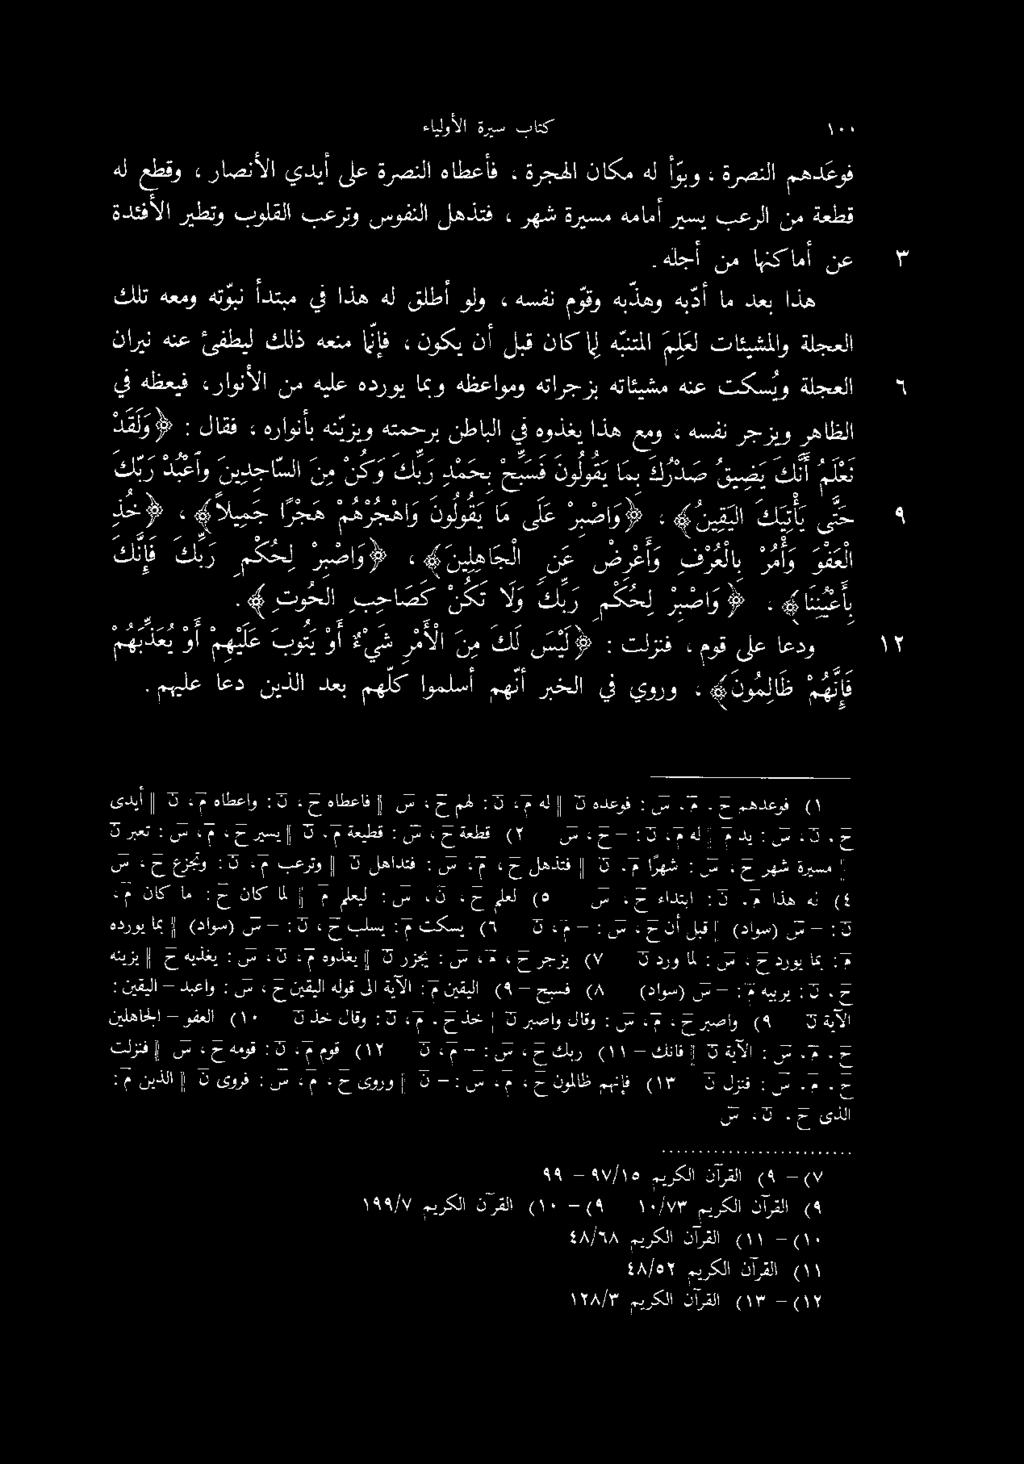 ١٠٠ كتاب سيرة الأولياء
فوعَدهم النصرة ، وبوّأ له مكان الهجرة ، فأعطاه النصرة على أيدي الأنصار ، وقطع له
قطعة من الرعب يسير أمامه مسيرة شهر ، فتذهل النفوس وترعب القلوب وتطير الأفئدة
٣ عن أماكنها من أجله .
هذا بعد ما أدّبه وهذّبه وقوّم نفسه ، ولو أطلق له هذا في مبتدأ نبوّته ومعه تلك
العجلة والمشيئات لعَلِمَ المتنبّه لِما كان قبل أن يكون ، فإنّما منعه ذلك ليطفئ عنه نيران
٦ العجلة ويُسكت عنه مشيئاته بزجراته ومواعظه وبما يورده عليه من الأنوار ، فيعظه في
الظاهر ويزجر نفسه ، ومع هذا يغذوه في الباطن برحمته ويزيّنه بأنواره ، فقال : ﴿وَلَقَدْ
نَعْلَمُ أَنَّكَ يَضِيقُ صَدْرُكَ بِمَا يَقُولُونَ فَسَبِّحْ بِحَمْدِ رَبِّكَ وَكُنْ مِنَ السَّاجِدِينَ وَاعْبُدْ رَبَّكَ
٩ حَتَّى يَأْتِيَكَ اليَقِينُ﴾ ، ﴿وَاصْبِرْ عَلَى مَا يَقُولُونَ وَاهْجُرْهُمْ هَجْرًا جَمِيلاً﴾ ، ﴿خُذِ
الْعَفْوَ وَأْمُرْ بِالْعُرْفِ وَأَعْرِضْ عَنِ الْجَاهِلِينَ﴾ ، ﴿وَاصْبِرْ لِحُكْمِ رَبِّكَ فَإِنَّكَ
بِأَعْيُنِنَا﴾ ، ﴿وَاصْبِرْ لِحُكْمِ رَبِّكَ وَلَا تَكُنْ كَصَاحِبِ الحُوتِ﴾ .
١٢ ودعا على قوم ، فنزلت : ﴿لَيْسَ لَكَ مِنَ الْأَمْرِ شَيْءٌ أَوْ يَتُوبَ عَلَيْهِمْ أَوْ يُعَذِّبَهُمْ
فَإِنَّهُمْ ظَالِمُونَ﴾ ، وروي في الخبر أنّهم أسلموا كلّهم بعد الذين دعا عليهم .
١) فوعدهم ح ، م ، س : فوعده ن || له م ، ن : لهم ح ، س || فاعطاه ح ، ن : واعطاه م ، ن || أيدى
ح ، ن ، س : يد م || له م ، ن : – ح ، س ٢) قطعة ح ، س : قطيعة م ، ن || يسير ح ، م ، س : تعبر ن
|| مسيرة شهر ح ، س : شهرًا م ، ن || فتذهل ح ، م ، س : فتداهل ن || وترعب م ، ن : وتجزع ح ، س
٤) له هذا م ، ن : ابتداء ح ، س ٥) لعلم ح ، ن ، س : ليعلم م || لما كان ح : ما كان م ،
ن : – س (سواد) || قبل أن ح ، س : – م ، ن ٦) يسكت م : يسلب ح ، ن : – س (سواد) || بما يورده
م : بما يورد ح ، س : لما ورد ن ٧) يزجر ح ، م ، س : يجزر ن || يغذوه م ، ن ، س : يغذيه ح || يزينه
ح ، ن : يربيه م : – س (سواد) ٨) فسبح – ٩) اليقين م : الآية الى قوله اليقين ح ، س : واعبد – اليقين :
الآية ن ٩) واصبر ح ، م ، س : وقال واصبر ن | خذ ح ، م ، ن : وقال خذ ن ١٠) العفو – الجاهلين
ح ، م ، س : الآية ن || فانك – ١١) ربك ح ، س : – م ، ن ١٢) قوم م ، ن : قومه ح ، س || فنزلت
ح ، م ، س : فنزل ن ١٣) فإنهم ظالمون ح ، م ، س : – ن || وروى ح ، م ، س : فروى ن || الذين م :
الذى ح ، ن ، س
٧) – ٩) القرآن الكريم ٩٧/١٥ – ٩٩
٩) القرآن الكريم ١٠/٧٣ ٩) – ١٠) القرآن الكريم ١٩٩/٧
١٠) – ١١) القرآن الكريم ٤٨/٦٨
١١) القرآن الكريم ٤٨/٥٢
١٢) – ١٣) القرآن الكريم ١٢٨/٣